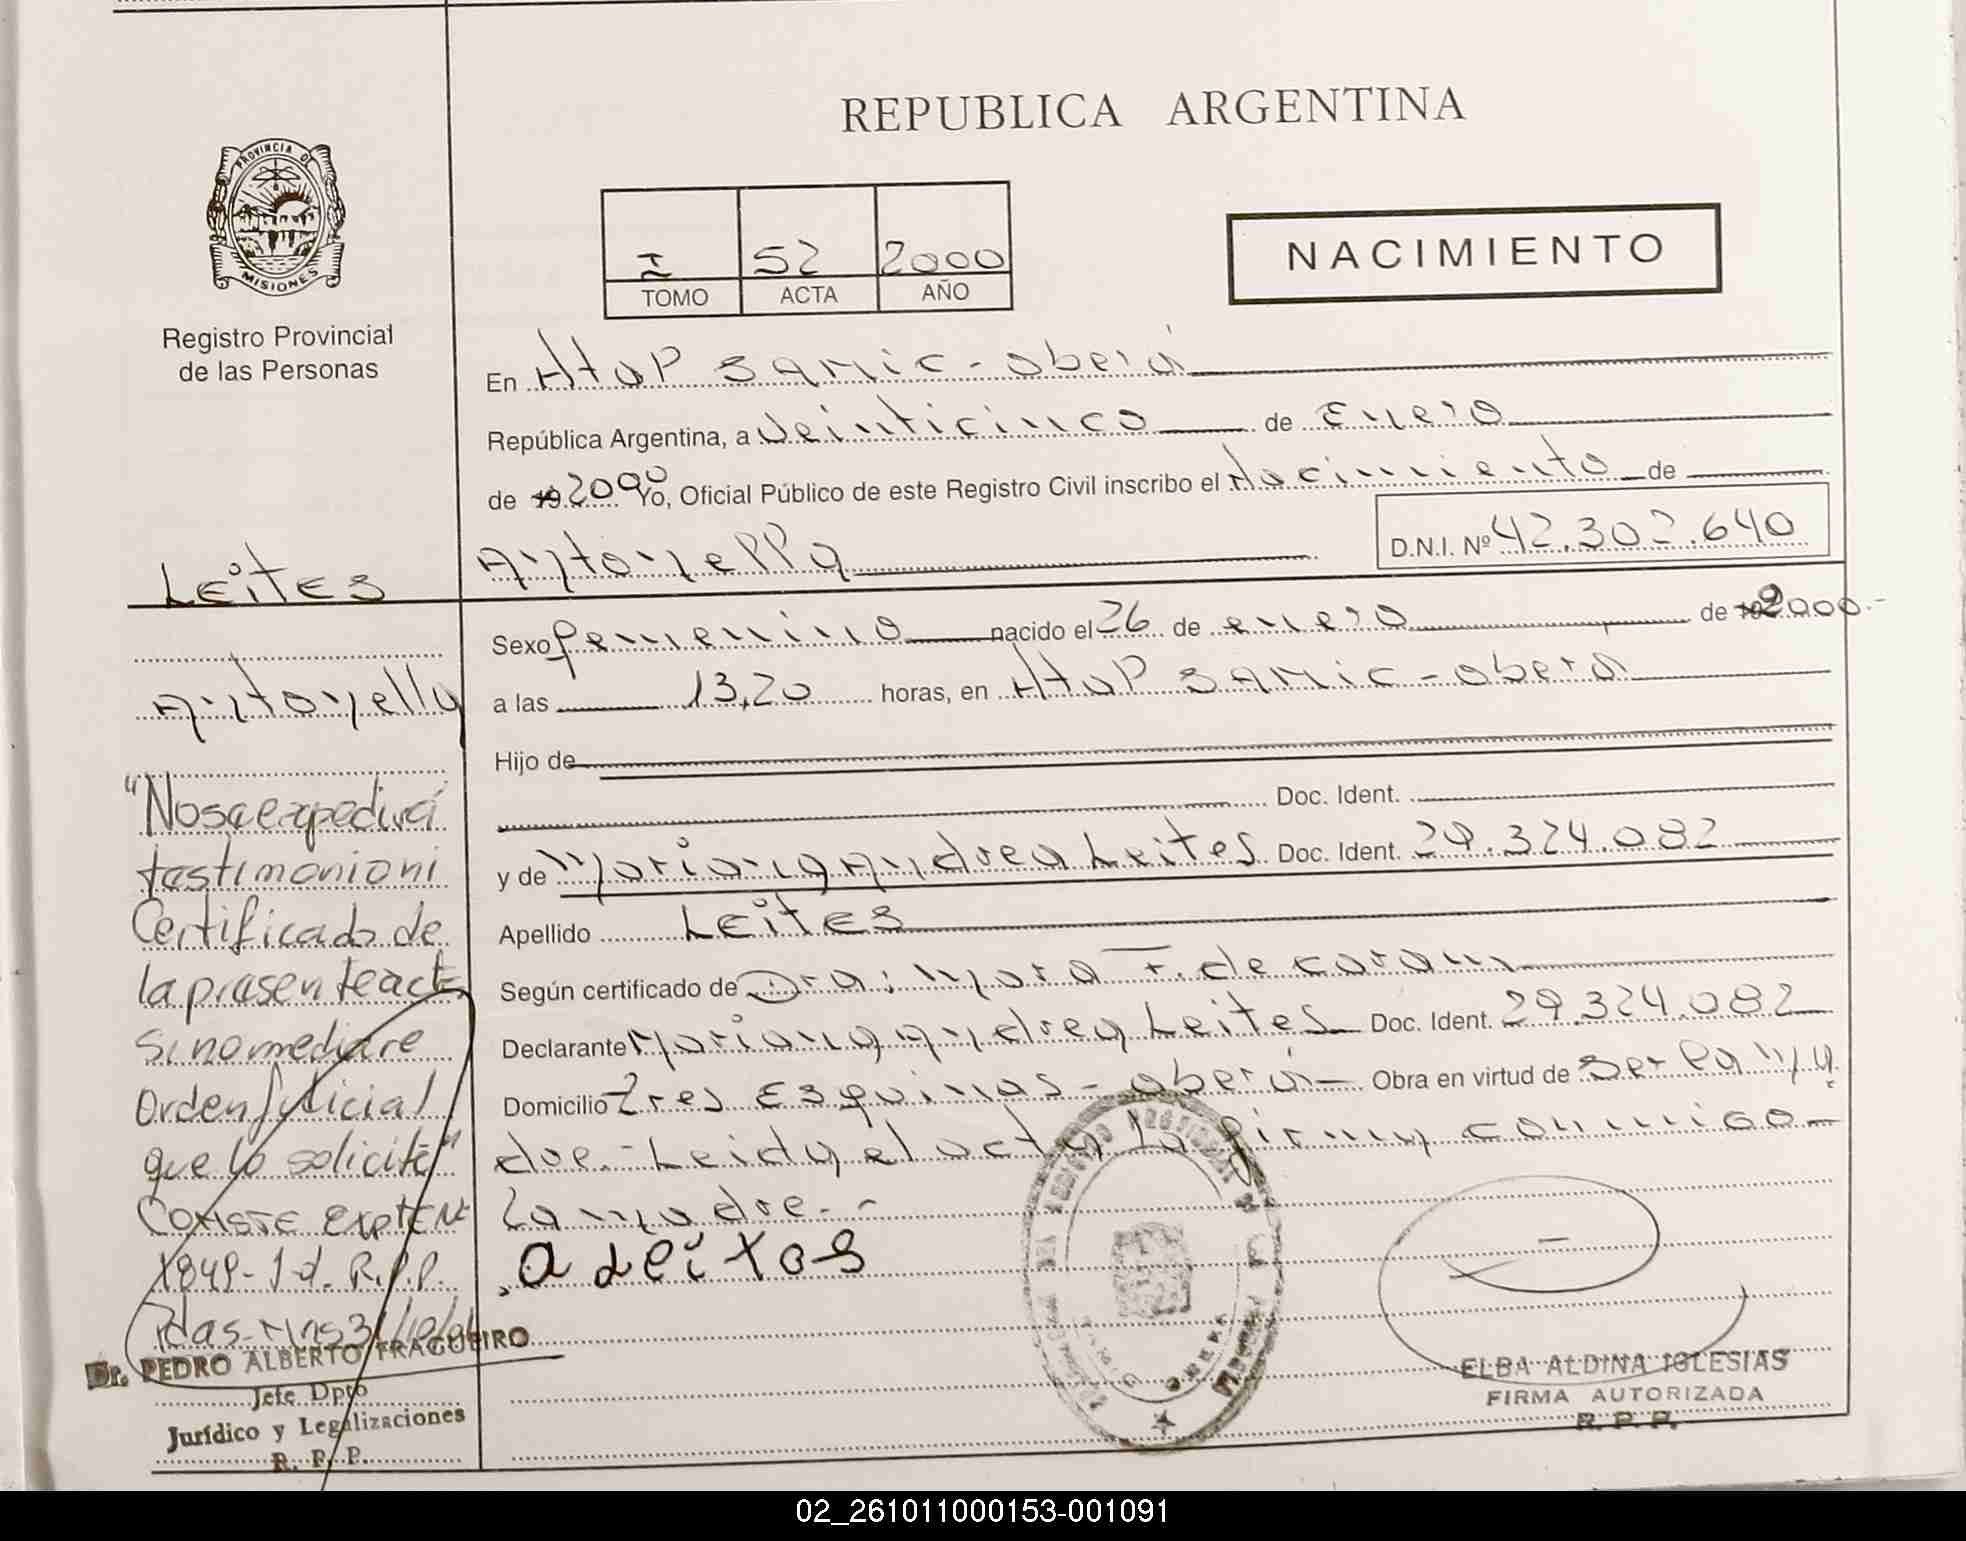 REPUBLICA ARGENTINA
PROVINCIA D
MISIONES
Registro Provincial
de las Personas
I 52 2000
TOMO ACTA AÑO
NACIMIENTO
En Htal Samic - Oberá
República Argentina, a Veinticinco de Enero
de 19 2000 Yo, Oficial Público de este Registro Civil inscribo el Nacimiento de
Antonella
D.N.I. Nº 42.302.640
Leites
Antonella
Sexo femenino nacido el 26 de enero de 19 2000.-
a las 13,20 horas, en Htal Samic - Oberá
Hijo de
Doc. Ident.
y de Mariana Andrea Leites Doc. Ident. 29.324.082
Apellido Leites
Según certificado de Dra: Mora F. de
Declarante Mariana Andrea Leites Doc. Ident. 29.324.082
Domicilio Tres Esquinas - Oberá - Obra en virtud de ser la ma
dre.- Leida el acta la firma conmigo -
La madre.-
"No se expedirá
testimonio ni
Certificado de
la presente act
Si no mediare
Orden Judicial
que lo solicite"
Conste Expte Nº
1849-J-d. R.P.P.
Pdas. Mns 31/10/01
Dr. PEDRO ALBERTO FRAGUEIRO
Jefe Dpto
Jurídico y Legalizaciones
R. P. P.
a Leites
ELBA ALDINA IGLESIAS
FIRMA AUTORIZADA
R. P. P.
02_261011000153-001091